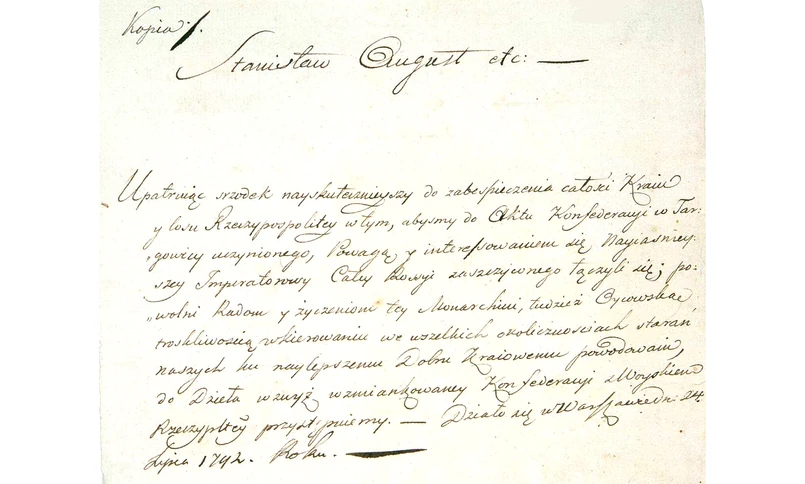 Kopia ./.
Stanisław August etc: —
Upatruiąc srzodek nayskutecznieyszy do zabespieczenia całości Kraiu
y losu Rzeczypospolitey w tym, abyśmy do Aktu Konfederacyi w Tar:
„gowicy uczynionego, Powagą y interessowaniem się Nayiaśniey:
szey Imperatorowy Całey Rossyi zaszczyconego łączyli się; po:
„wolni Radom y życzeniom tey Monarchini, tudzież Oycowską
troskliwością w kierowaniu we wszelkich okolicznościach starań
naszych ku naylepszemu Dobru Kraiowemu powodowani,
do Dzieła wzwyż wzmiankowaney Konfederacyi z Woyskiem
Rzeczypltey przystępuiemy. — Działo się w Warszawie dn: 24
Lipca 1792. Roku. —